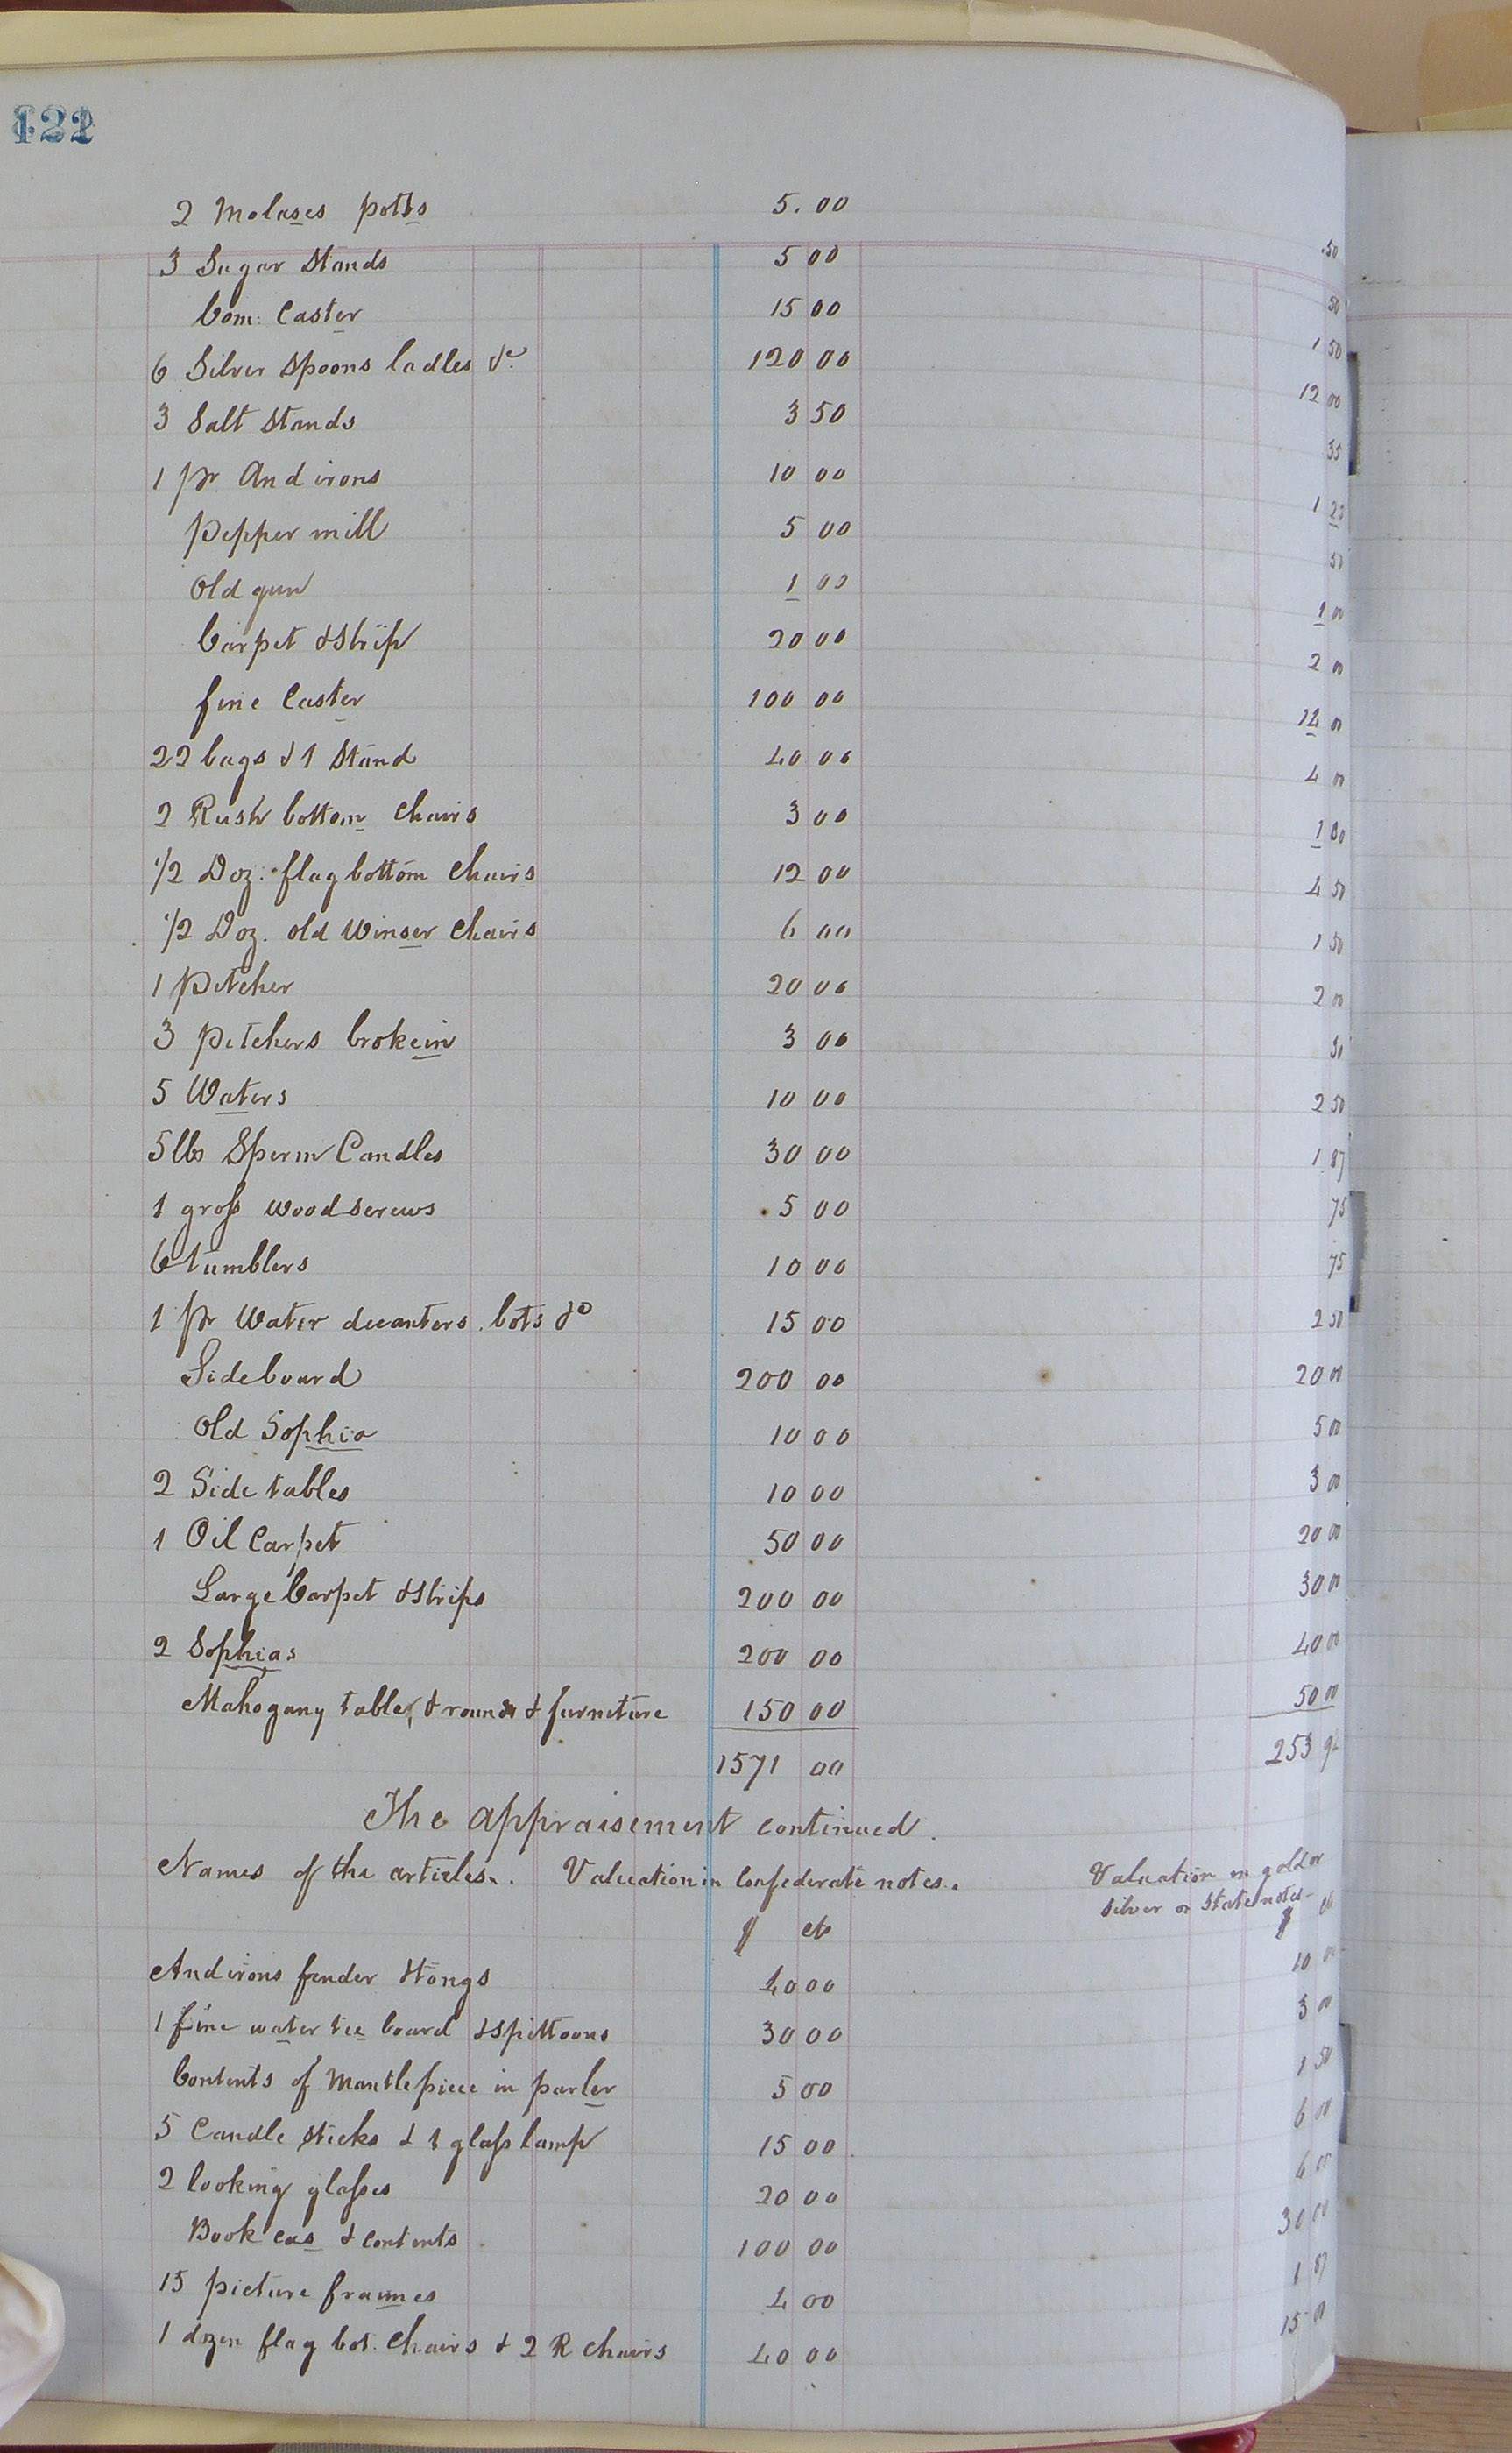 2 Molases potts 5.00
3 Sugar Stands 5 00 .50
Com: Caster 15 00 50
6 Silver Spoons ladles &c. 120 00 1 50
3 Salt Stands 3 50 12 00
1 pr Andirons 10 00 35
Pepper mill 5 00 1 25
Old gun 1 00 50
Carpet & Strip 20 00 1 00
fine Caster 100 00 2 00
22 bags & 1 Stand 40 00 14 00
2 Rush bottom Chairs 3 00 4 00
1/2 Doz. flag bottom Chairs 12 00 1 00
1/2 Doz. old Winser Chairs 6 00 4 50
1 Pitcher 20 00 1 50
3 Pitchers brokein 3 00 2 00
5 Waters 10 00 50
5 lbs Sperm Candles 30 00 2 50
1 gross wood screws 5 00 1 87
6 tumblers 10 00 75
1 pr Water decanters. bots &c 15 00 75
Sideboard 200 00 2 50
Old Sophia 10 00 20 00
2 Side tables 10 00 5 00
1 Oil Carpet 50 00 3 00
Large Carpet & Strips 200 00 20 00
2 Sophias 200 00 30 00
Mahogany table, & round & furniture 150 00 40 00
50 00
1571 00 253 92
The appraisement continued.
Names of the articles. Valuation in Confederate notes. Valuation in gold or
silver or State notes
$ cts $ cts
Andirons fender & tongs 40 00 10 00
1 fine water tee board & spittoons 30 00 3 00
Contents of Mantlepiece in parler 5 00 1 50
5 Candle sticks & 1 glass lamp 15 00 6 00
2 looking glasses 20 00 6 00
Book cas & contents 100 00 30 00
15 picture fraimes 4 00 1 87
1 dozen flag bot. Chairs & 2 R chairs 40 00 15 00